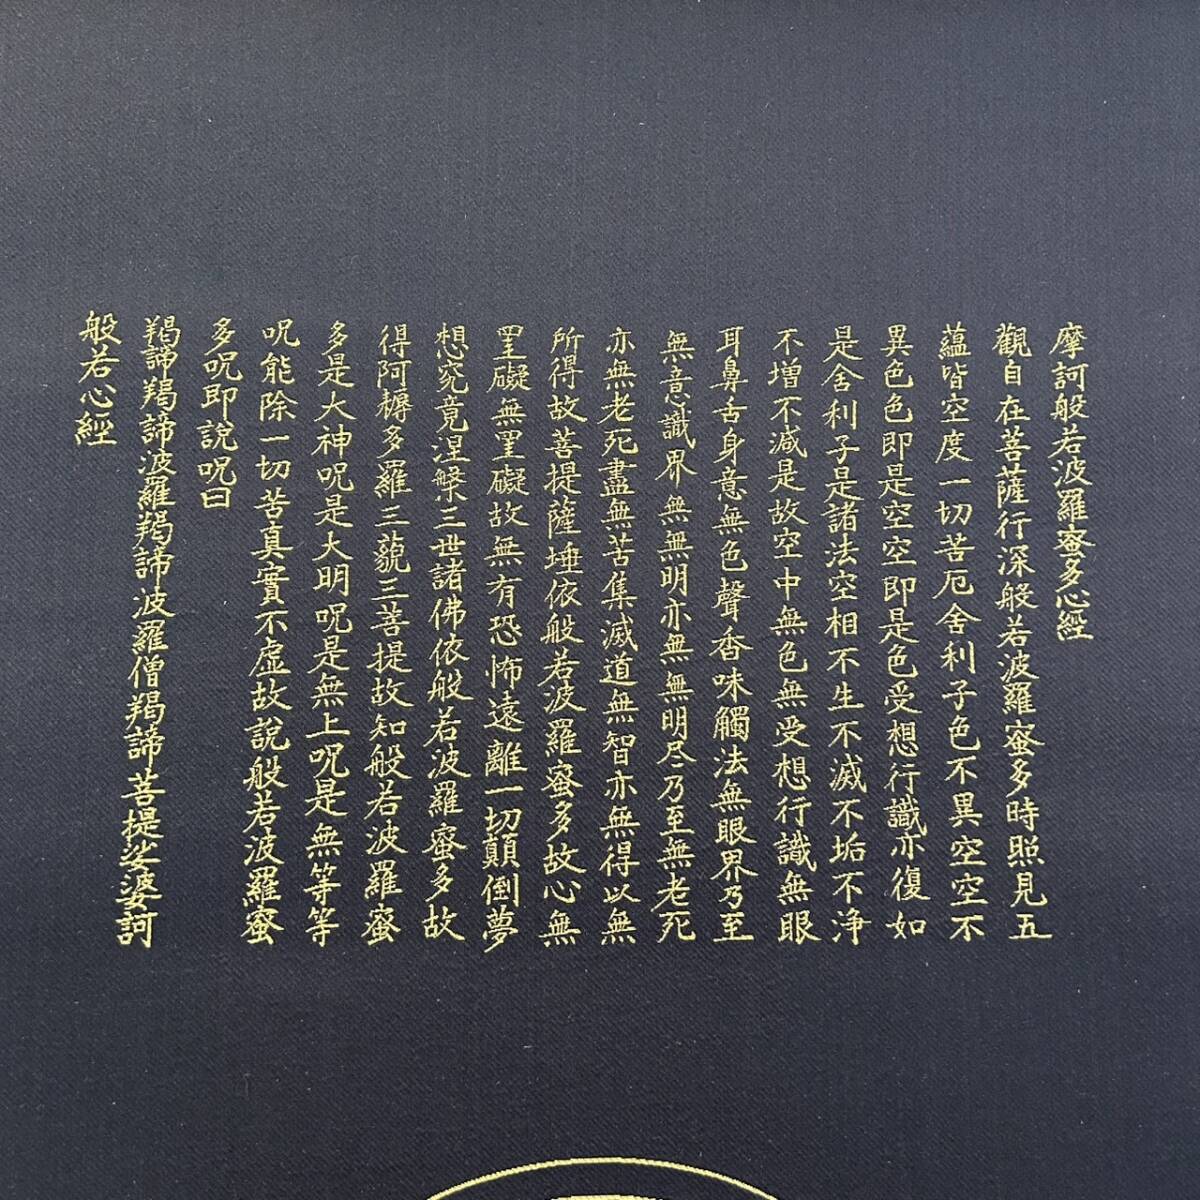 摩訶般若波羅蜜多心經
觀自在菩薩行深般若波羅蜜多時照見五
蘊皆空度一切苦厄舍利子色不異空空不
異色色即是空空即是色受想行識亦復如
是舍利子是諸法空相不生不滅不垢不浄
不增不減是故空中無色無受想行識無眼
耳鼻舌身意無色聲香味觸法無眼界乃至
無意識界無無明亦無無明尽乃至無老死
亦無老死盡無苦集滅道無智亦無得以無
所得故菩提薩埵依般若波羅蜜多故心無
罣礙無罣礙故無有恐怖遠離一切顛倒夢
想究竟涅槃三世諸佛依般若波羅蜜多故
得阿耨多羅三藐三菩提故知般若波羅蜜
多是大神呪是大明呪是無上呪是無等等
呪能除一切苦真實不虛故說般若波羅蜜
多呪即說呪曰
羯諦羯諦波羅羯諦波羅僧羯諦菩提娑婆訶
般若心經